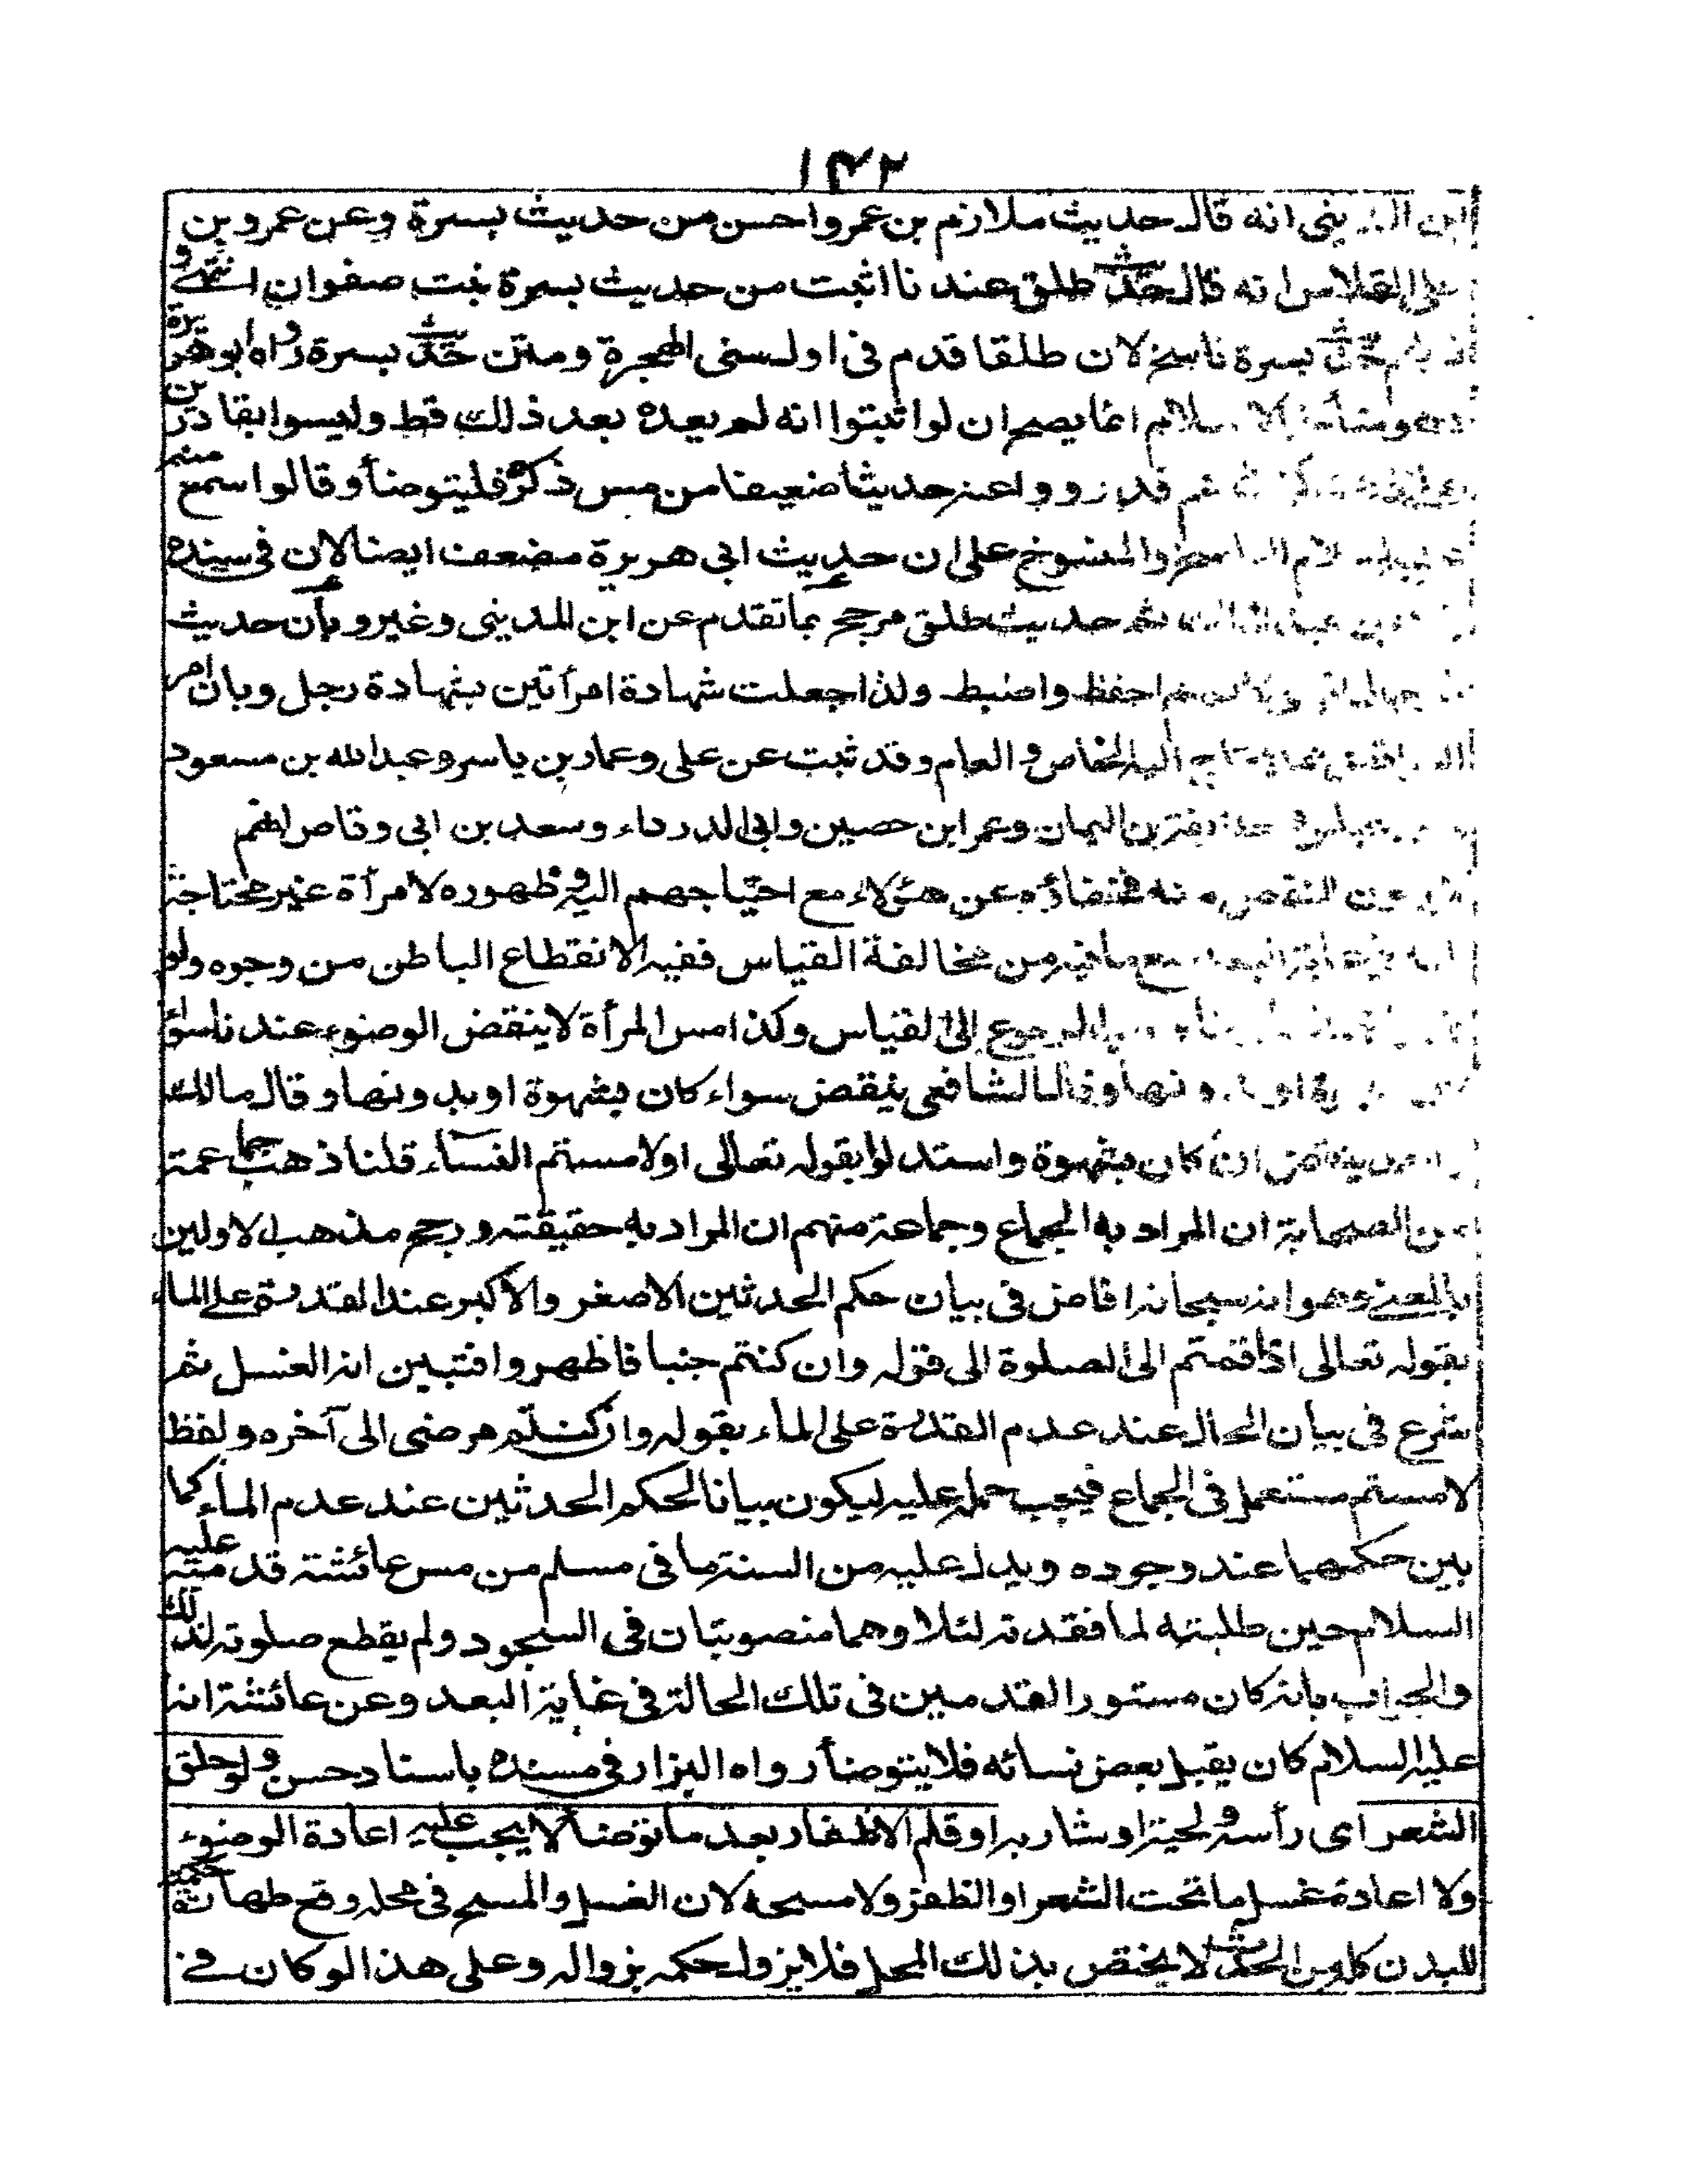 ١٤٢
ابن المدينى انه قال حديث ملازم بن عمرو احسن من حديث بسرة وعن عمرو بن
على الفلاس انه قال حديث طلق عندنا اثبت من حديث بسرة بنت صفوان انتهى و
حديث بسرة ناسخ لان طلقا قدم فى اول سنى الهجرة ومتن حديث بسرة رواه ابو هريرة
انما يصح ان لو اثبتوا انه لم يعده بعد ذلك قط وليسوا بقادرين
قد رووا عنه حديثا ضعيفا من مس ذكره فليتوضأ وقالوا سمع منه
والمنسوخ على ان حديث ابى هريرة مضعف ايضا لان فى سنده
ثم حديث طلق مرجح بما تقدم عن ابن المدينى وغيره وبأن حديث
احفظ واضبط ولذا جعلت شهادة امرأتين بشهادة رجل وبان امر
اليه الخاص والعام وقد ثبت عن على وعمار بن ياسر وعبد الله بن مسعود
بن اليمان وعمر ابن حصين وابى الدرداء وسعد بن ابى وقاص انهم
النقض منه عن هؤلاء مع احتياجهم اليه وظهوره لامرأة غير محتاجة
مع ما فيه من مخالفة القياس ففيه الانقطاع الباطن من وجوه ولو
الرجوع الى القياس وكذا مس المرأة لا ينقض الوضوء عندنا سواء
او بدونها وقال الشافعى ينقض سواء كان بشهوة او بدونها وقال مالك
ينقض ان كان بشهوة واستدلوا بقوله تعالى اولامستم النساء قلنا ذهب جماعة
من الصحابة ان المراد به الجماع وجماعة منهم ان المراد به حقيقته ورجح مذهب الاولين
بالمعنى وهو انه سبحانه افاض فى بيان حكم الحدثين الاصغر والاكبر عند القدرة على الماء
بقوله تعالى اذا قمتم الى الصلوة الى قوله وان كنتم جنبا فاظهروا فتبين انه الغسل ثم
شرع فى بيان الحال عند عدم القدرة على الماء بقوله وان كنتم مرضى الى آخره ولفظ
لامستم مستعمل فى الجماع فيجب حمله عليه ليكون بيانا لحكم الحدثين عند عدم الماء كما
بين حكمهما عند وجوده ويدل عليه من السنة ما فى مسلم من مس عائشة قدمته عليه
السلام حين طلبته لما فقدته لئلا وهما منصوبتان فى السجود ولم يقطع صلوته لذلك
والجواب بانه كان مستور القدمين فى تلك الحالة فى غاية البعد وعن عائشة انه
عليه السلام كان يقبل بعض نسائه فلا يتوضأ رواه البزار فى مسنده باسناد حسن ولو حلق
الشعر اى رأسه ولحيته او شاربه او قلم الاظفار بعد ما توضأ لا يجب عليه اعادة الوضوء
ولا اعادة غسل ما تحت الشعر او الظفر ولا مسحه لان الغسل والمسح فى محله وقع طهارة حكمية
للبدن كله من الحدث لا يختص بذلك المحل فلا يزول حكمه بزواله وعلى هذا لو كان فى